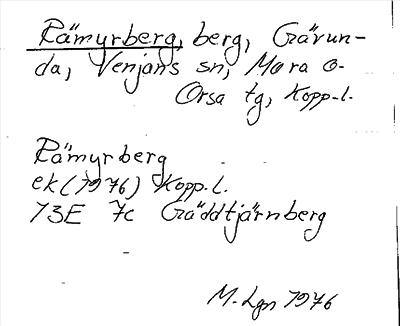 Rämyrberg, berg, Gävun-
da, Venjans sn, Mora o.
Orsa tg, Kopp.l.
Rämyrberg
ek (1976) Kopp.l.
13E 7c Gäddtjärnberg
M. Lgn 1976